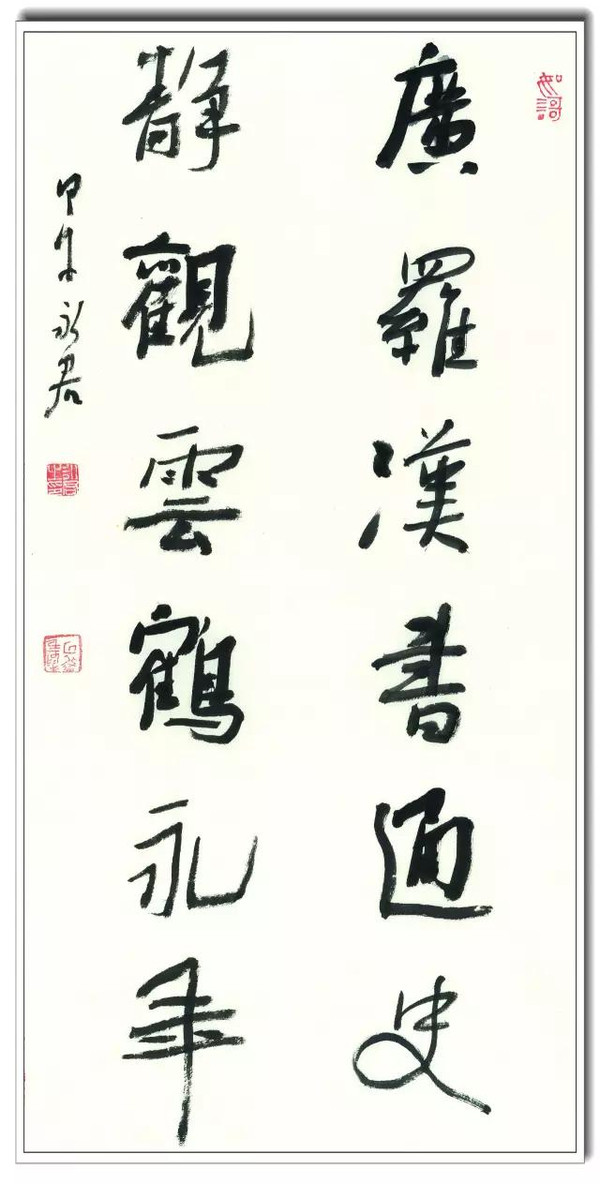 廣羅漢書通史
靜觀雲鶴永年
甲午永君